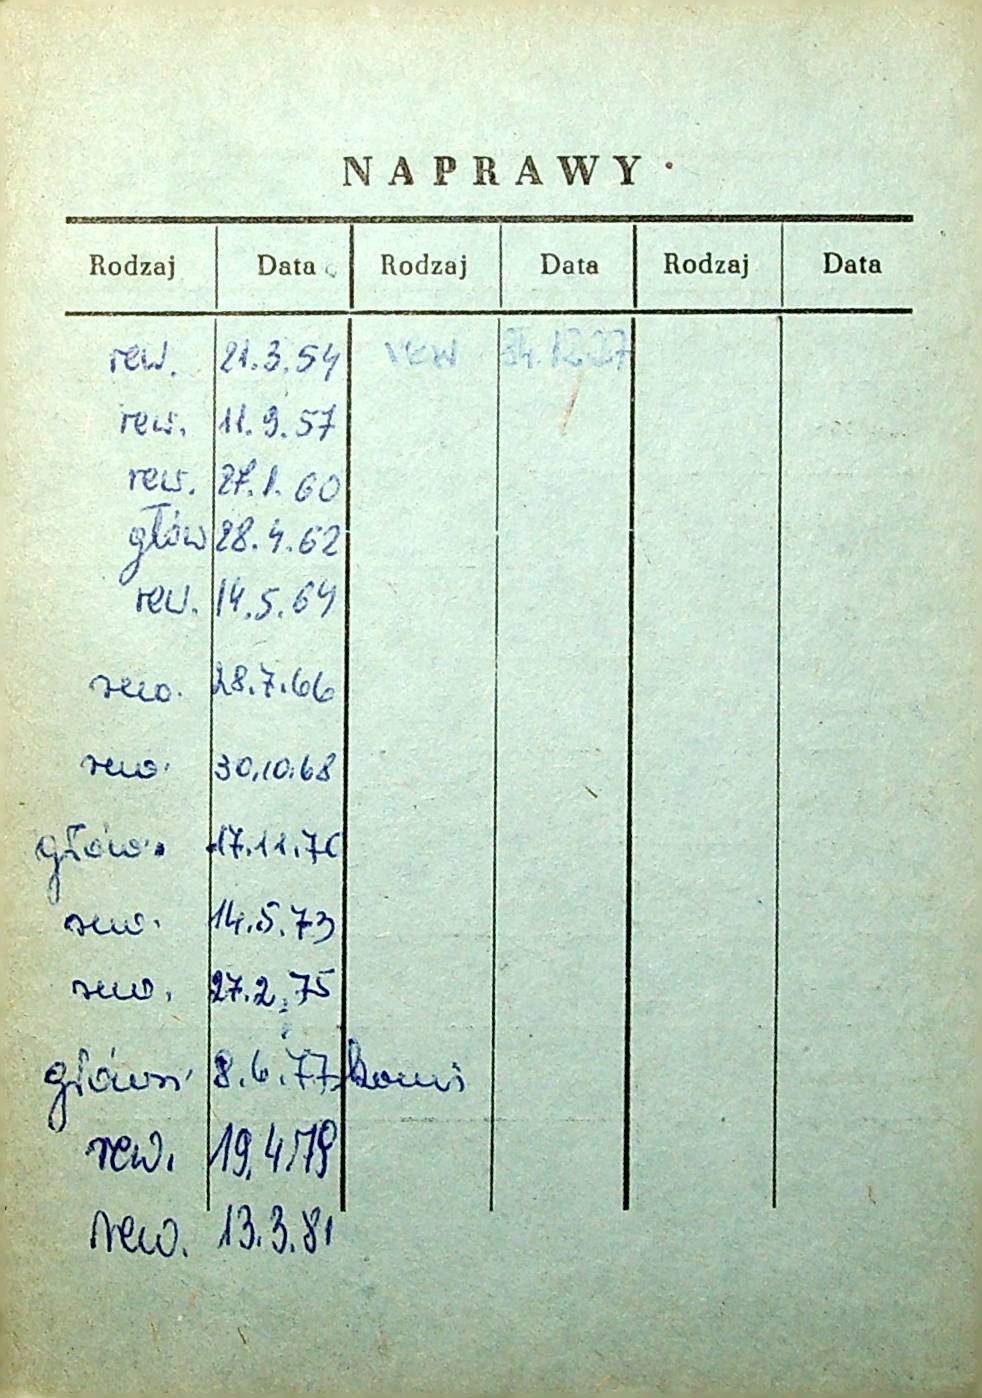 NAPRAWY
Rodzaj Data Rodzaj Data Rodzaj Data
rew. 21.3.54 rew
rew. 11.9.57
rew. 27.1.60
głów 28.4.62
rew. 14.5.64
rew. 28.7.66
rew. 30.10.68
głów. 17.11.70
rew. 14.5.73
rew. 27.2.75
8.6.77
rew. 19.4.79
rew. 13.3.81